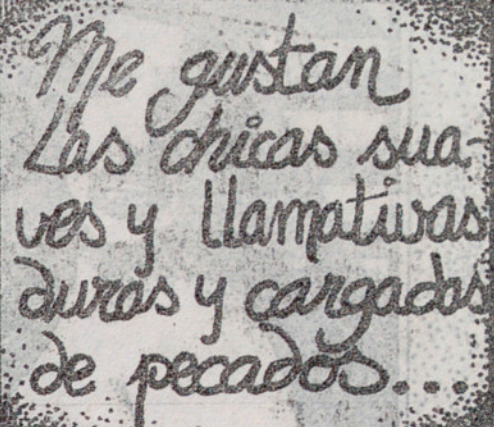 Me gustan
Las chicas sua-
ves y llamativas
duras y cargadas
de pecados...